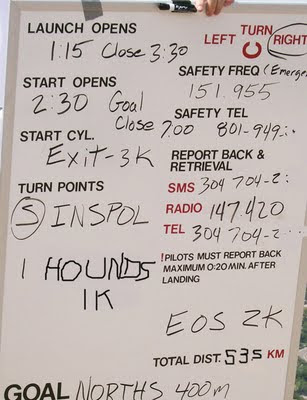 LAUNCH OPENS
1:15 Close 3:30
START OPENS
2:30 Goal
Close 7:00
START CYL.
Exit-3K
TURN POINTS
S INSPOL
1 HOUNDS
1K
LEFT TURN RIGHT
SAFETY FREQ (Emerge
151.955
SAFETY TEL
801-949
REPORT BACK &
RETRIEVAL
SMS 304 704-2
RADIO 147.420
TEL 304 704-2
!PILOTS MUST REPORT BACK
MAXIMUM 0:20 MIN. AFTER
LANDING
EOS 2K
TOTAL DIST. 53.5 KM
GOAL NORTHS 400m